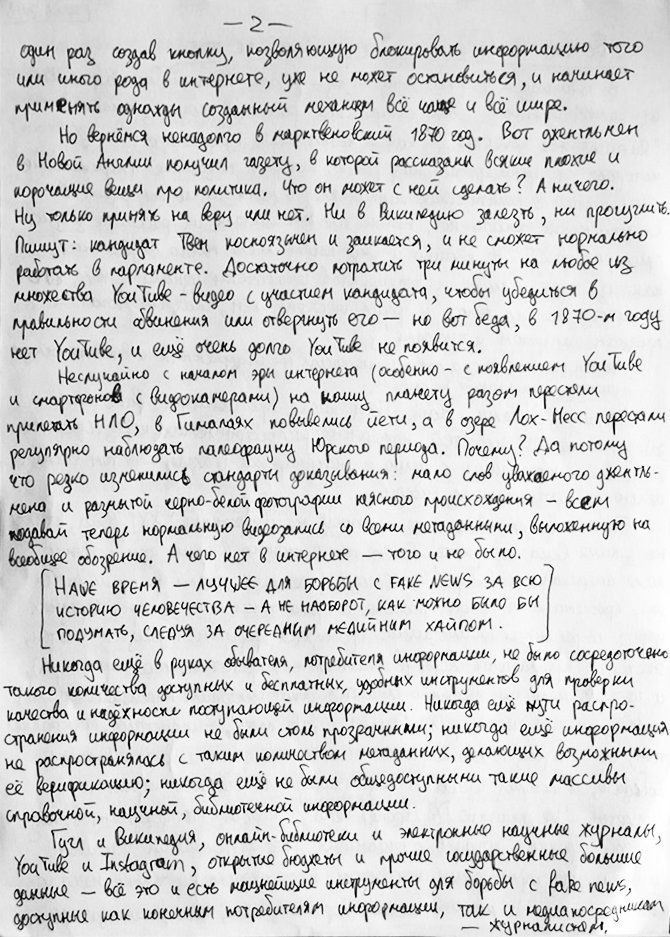 — 2 —
один раз создав кнопку, позволяющую блокировать информацию того
или иного рода в интернете, уже не может остановиться, и начинает
применять однажды созданный механизм всё чаще и всё шире.
Но вернёмся ненадолго в марктвеновский 1870 год. Вот джентльмен
в Новой Англии получил газету, в которой рассказаны всякие плохие и
порочащие вещи про политика. Что он может с ней сделать? А ничего.
Ну только принять на веру или нет. Ни в Википедию залезть, ни прогуглить.
Пишут: кандидат Твен косноязычен и заикается, и не сможет нормально
работать в парламенте. Достаточно потратить три минуты на любое из
множества YouTube-видео с участием кандидата, чтобы убедиться в
правильности обвинения или отвергнуть его — но вот беда, в 1870-м году
нет YouTube, и ещё очень долго YouTube не появится.
Неслучайно с началом эры интернета (особенно - с появлением YouTube
и смартфонов с видеокамерами) на нашу планету разом перестали
прилетать НЛО, в Гималаях повывелись йети, а в озере Лох-Несс перестали
регулярно наблюдать палеофауну Юрского периода. Почему? Да потому
что резко изменились стандарты доказывания: мало слов уважаемого джентль-
мена и размытой черно-белой фотографии неясного происхождения - всем
подавай теперь нормальную видеозапись со всеми метаданными, выложенную на
всеобщее обозрение. А чего нет в интернете — того и не было.
[НАШЕ ВРЕМЯ — ЛУЧШЕЕ ДЛЯ БОРЬБЫ С FAKE NEWS ЗА ВСЮ
ИСТОРИЮ ЧЕЛОВЕЧЕСТВА — А НЕ НАОБОРОТ, КАК МОЖНО БЫЛО БЫ
ПОДУМАТЬ, СЛЕДУЯ ЗА ОЧЕРЕДНЫМ МЕДИЙНЫМ ХАЙПОМ.]
Никогда ещё в руках обывателя, потребителя информации, не было сосредоточено
такого количества доступных и бесплатных, удобных инструментов для проверки
качества и надёжности поступающей информации. Никогда ещё пути распро-
странения информации не были столь прозрачными; никогда ещё информация
не распространялась с таким количеством метаданных, делающих возможными
её верификацию; никогда ещё не были общедоступными такие массивы
справочной, научной, библиотечной информации.
Гугл и Википедия, онлайн-библиотеки и электронные научные журналы,
YouTube и Instagram, открытые бюджеты и прочие государственные большие
данные — всё это и есть мощнейшие инструменты для борьбы с fake news,
доступные как конечным потребителям информации, так и медиапосредникам
— журналистам.